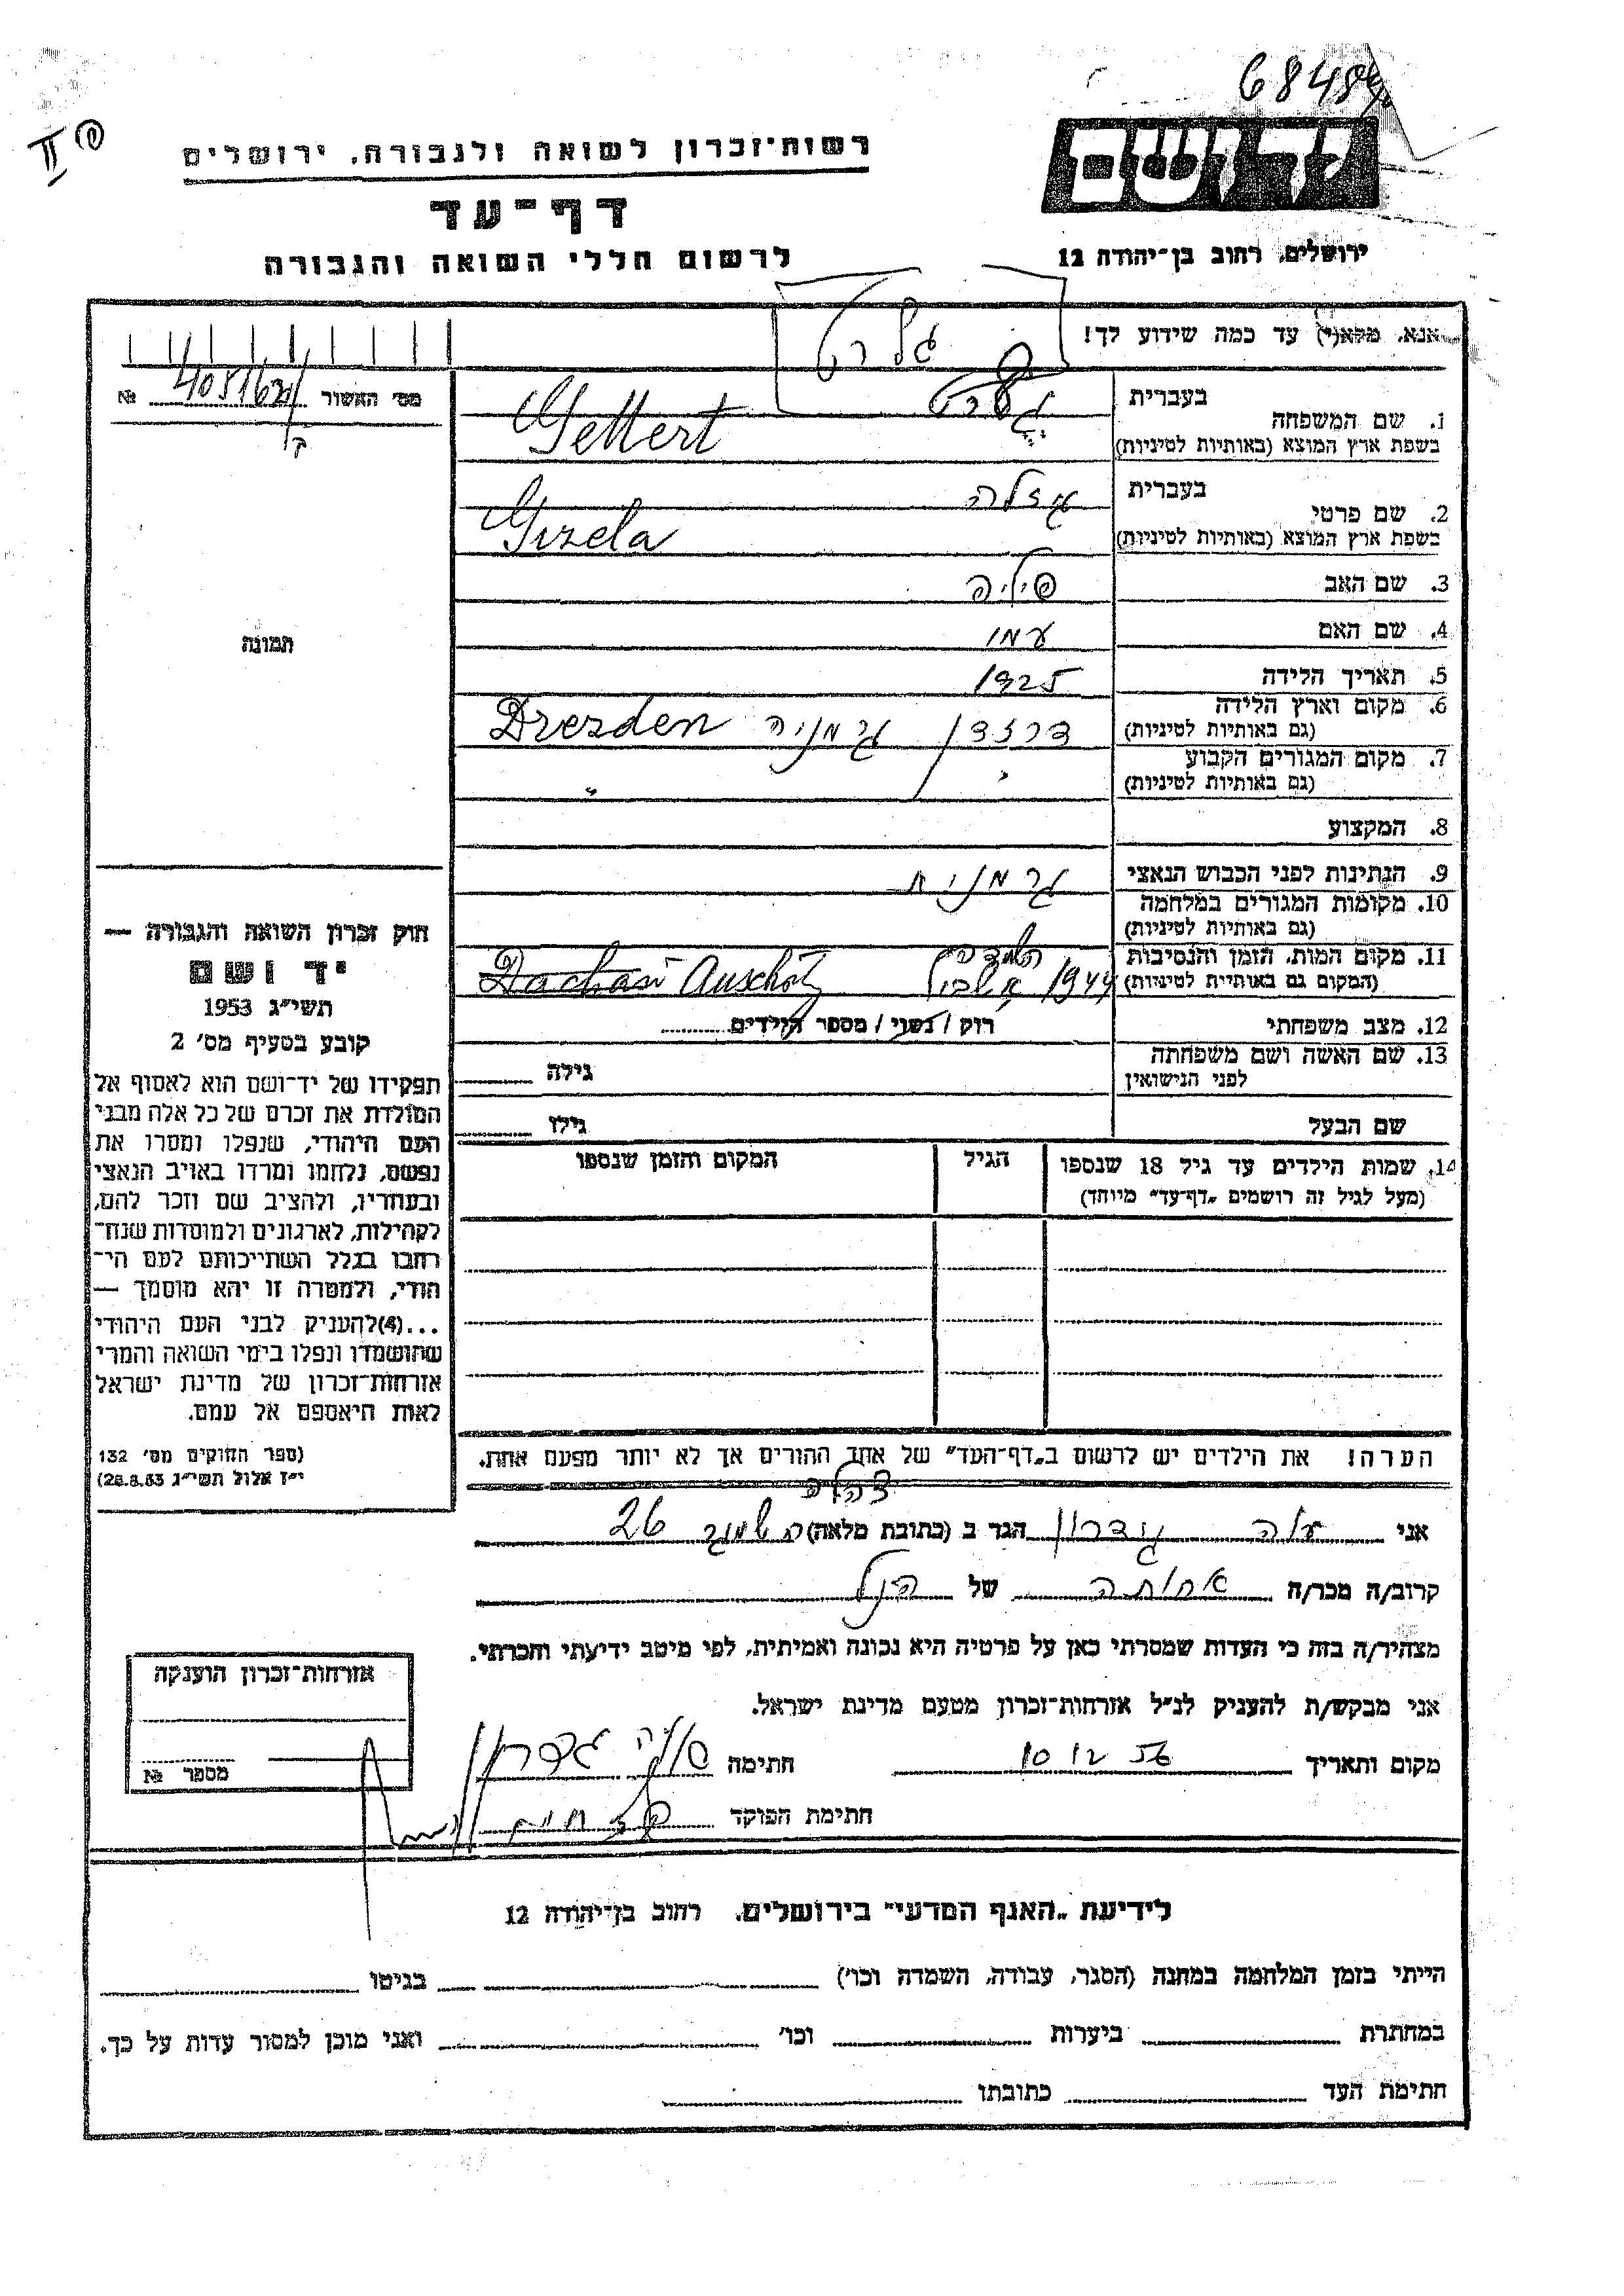 68484
II
רשות־זכרון לשואה ולגבורה, ירושלים
דף־עד
לרשום חללי השואה והגבורה
יד ושם
ירושלים, רחוב בן־יהודה 12
אנא, מלא(י) עד כמה שידוע לך!
גלרט
מס׳ האשור № 405162
1. שם המשפחה
בעברית
גלרט
בשפת ארץ המוצא (באותיות לטיניות)
Gellert
2. שם פרטי
בעברית
גיזלה
בשפת ארץ המוצא (באותיות לטיניות)
Gizela
3. שם האב
4. שם האם
5. תאריך הלידה 1925
6. מקום וארץ הלידה
(גם באותיות לטיניות)
דרזדן גרמניה Drezden
7. מקום המגורים הקבוע
(גם באותיות לטיניות)
"
8. המקצוע
9. הנתינות לפני הכבוש הנאצי גרמנית
10. מקומות המגורים במלחמה
(גם באותיות לטיניות)
11. מקום המות, הזמן והנסיבות
(המקום גם באותיות לטיניות)
1944
12. מצב משפחתי רוק / נשוי / מספר הילדים
13. שם האשה ושם משפחתה
לפני הנישואין
גילה
שם הבעל גילו
14. שמות הילדים עד גיל 18 שנספו
(מעל לגיל זה רושמים „דף־עד״ מיוחד)
הגיל
המקום והזמן שנספו
תמונה
חוק זכרון השואה והגבורה —
יד ושם
תשי״ג 1953
קובע בסעיף מס׳ 2
תפקידו של יד־ושם הוא לאסוף אל
המולדת את זכרם של כל אלה מבני
העם היהודי, שנפלו ומסרו את
נפשם, נלחמו ומרדו באויב הנאצי
ובעוזריו, ולהציב שם וזכר להם,
לקהילות, לארגונים ולמוסדות שנח־
רחבו בגלל השתייכותם לעם הי־
הודי, ולמטרה זו יהא מוסמך —
...(4)להעניק לבני העם היהודי
שהושמדו ונפלו בימי השואה והמרי
אזרחות־זכרון של מדינת ישראל
לאות היאספם אל עמם.
(ספר החוקים מס׳ 132
י״ז אלול תשי״ג 28.8.53)
הערה! את הילדים יש לרשום ב„דף־העד״ של אחד ההורים אך לא יותר מפעם אחת.
אני גדרון הגר ב (כתובת מלאה) 26
קרוב/ה מכר/ה אחותה של הנ״ל
מצהיר/ה בזה כי העדות שמסרתי כאן על פרטיה היא נכונה ואמיתית, לפי מיטב ידיעתי והכרתי.
אני מבקש/ת להעניק לנ״ל אזרחות־זכרון מטעם מדינת ישראל.
מקום ותאריך 10 12 56 חתימה גדרון
חתימת הפוקד
אזרחות־זכרון הוענקה
מספר №
לידיעת „האגף המדעי״ בירושלים, רחוב בן־יהודה 12
הייתי בזמן המלחמה במחנה (הסגר, עבודה, השמדה וכו׳) בגיטו
במחתרת ביערות וכו׳ ואני מוכן למסור עדות על כך.
חתימת העד כתובתו